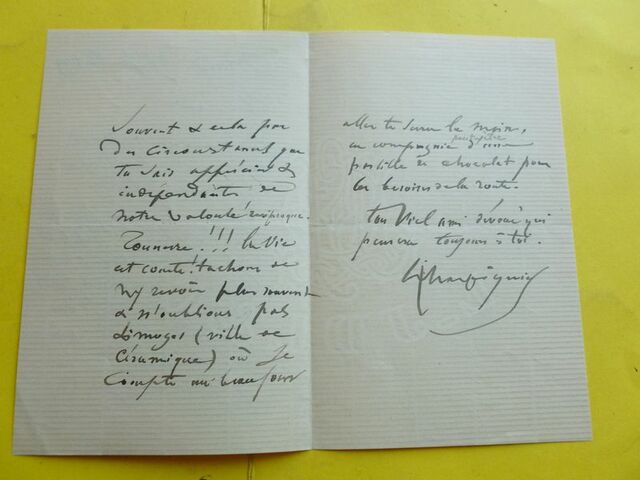 Souvent & cela par
des circonstances que
tu sais apprécier &
indépendantes de
notre volonté réciproque.
Tonnerre!!! la Vie
est courte! tachons de
se revoir plus souvent
& n'oublions pas
Limoges (ville de
Céramique) où je
compte un beau jour
aller te serrer la main,
en compagnie peut-être d'une
pastille de chocolat pour
les besoins de la route.
ton Vieil ami dévoué qui
pensera toujours à toi.